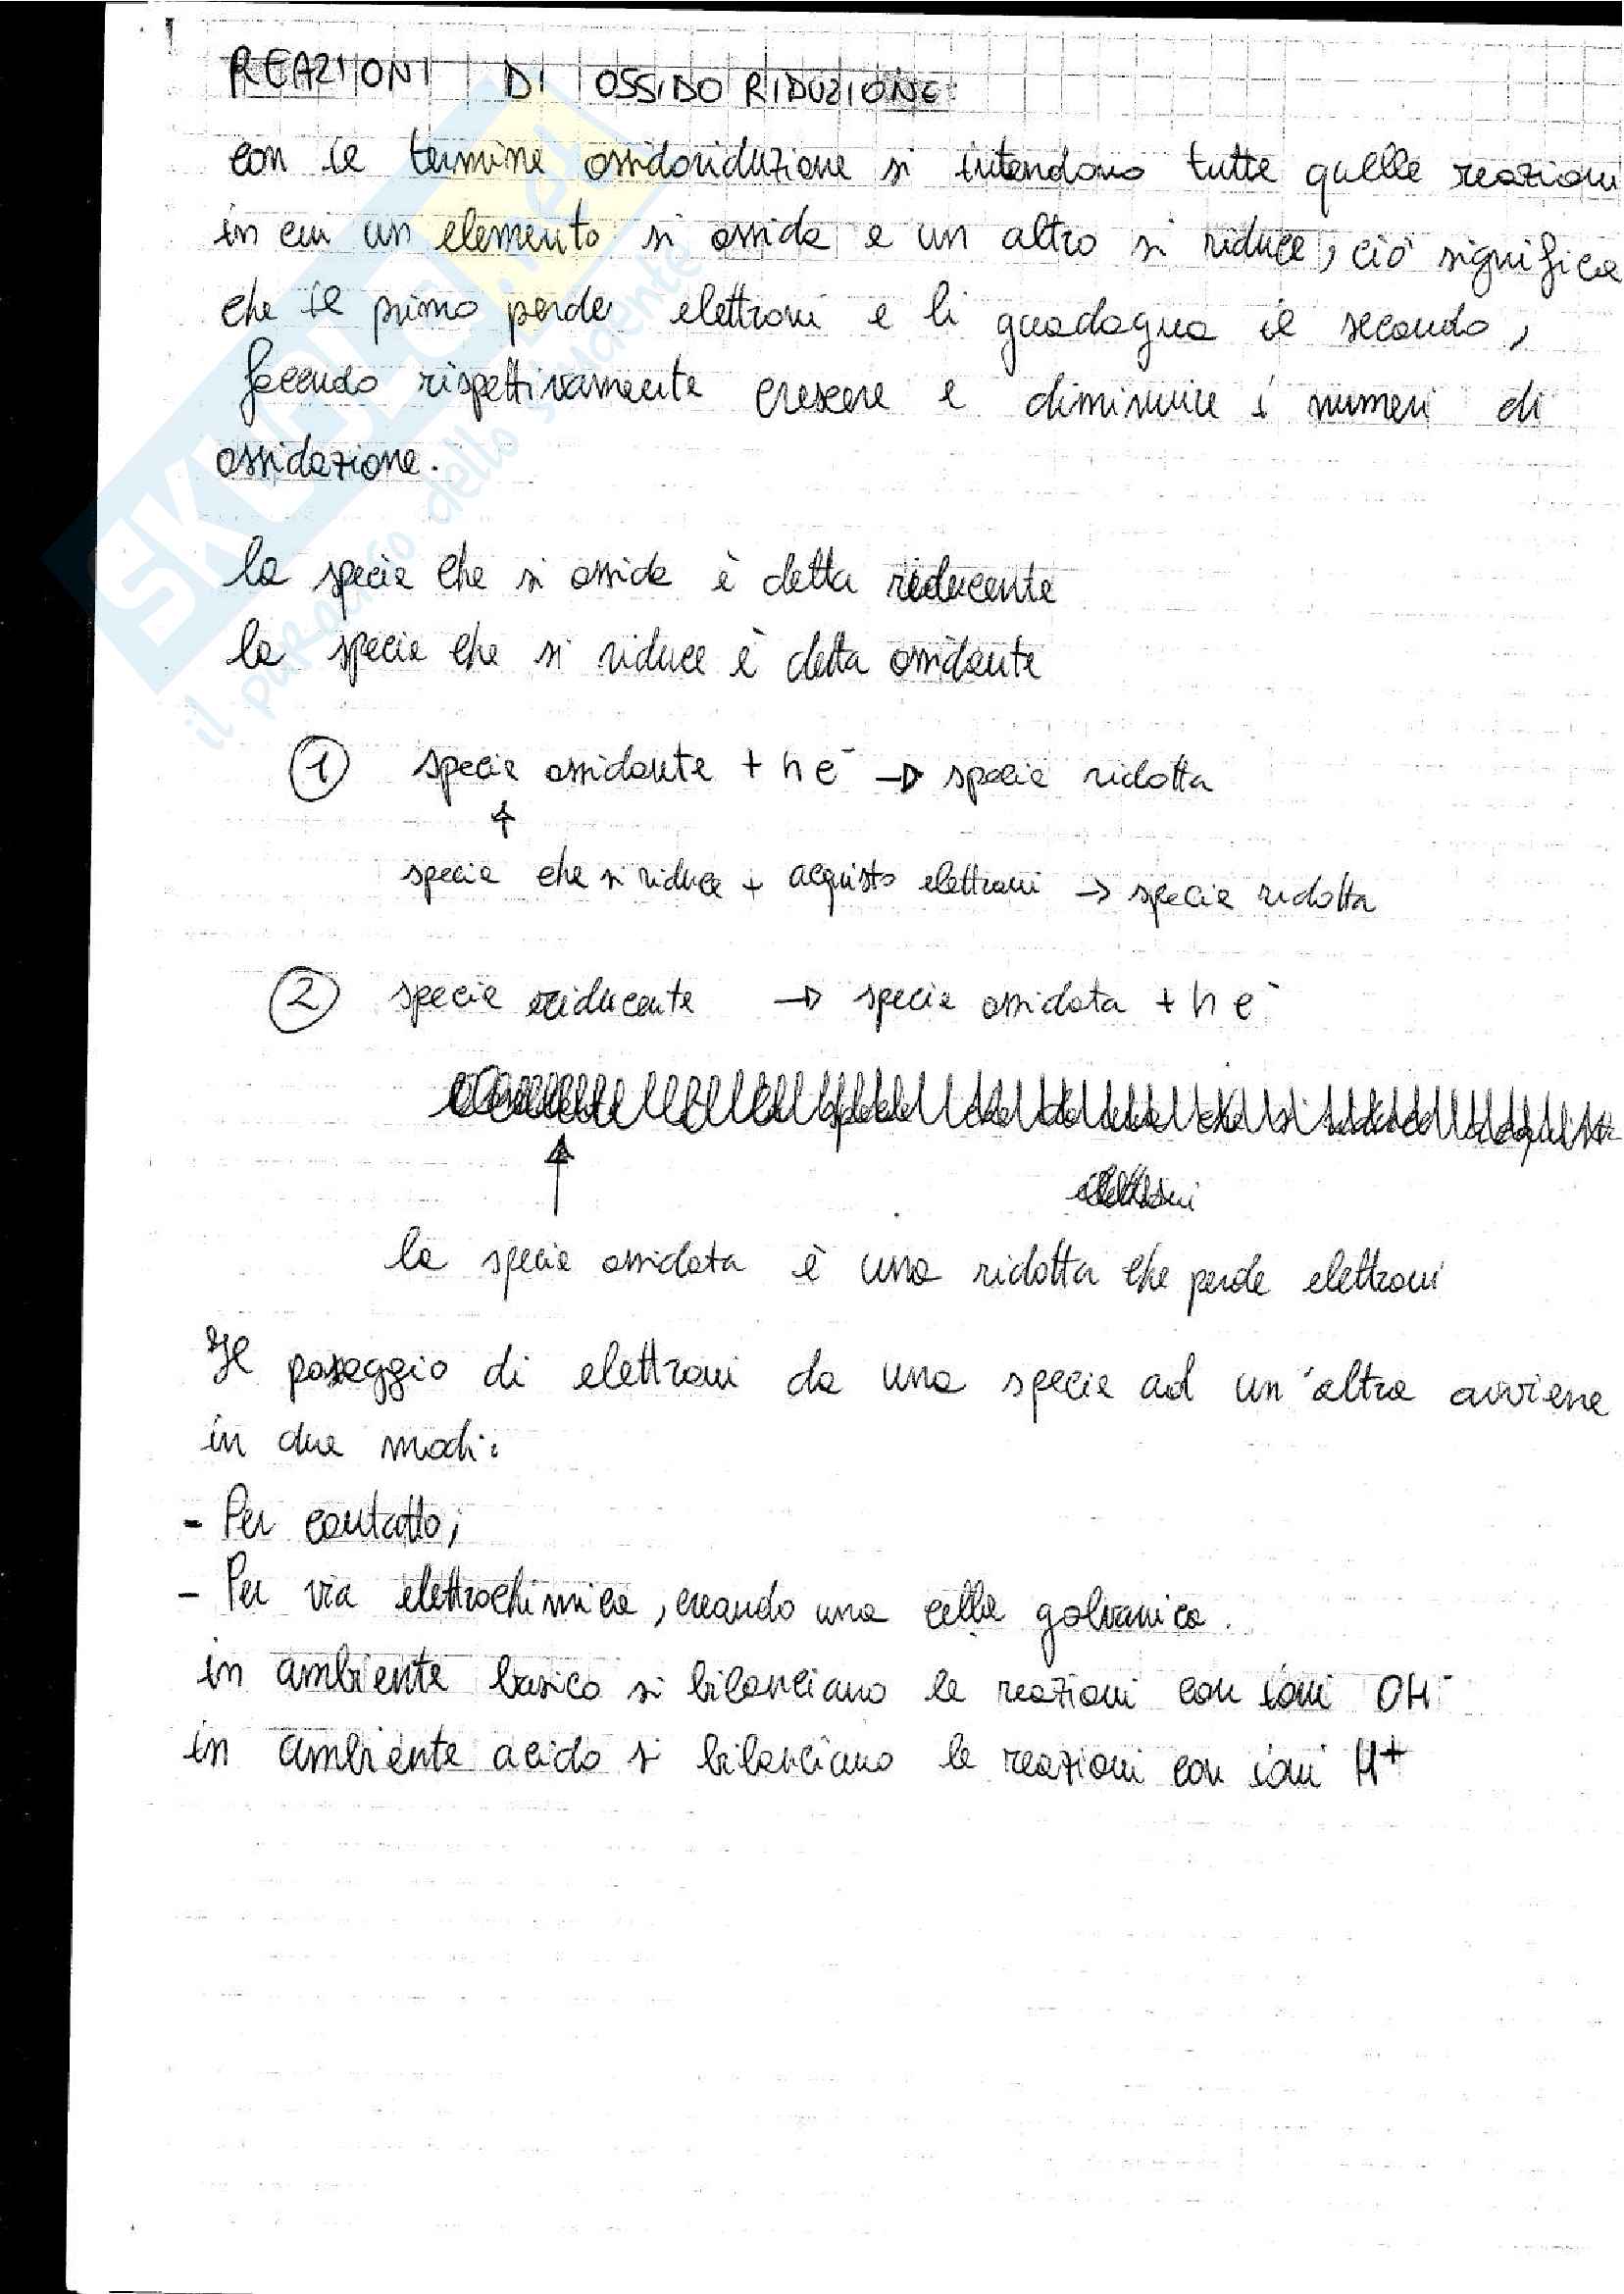 1
REAZIONI DI OSSIDORIDUZIONE
con il termine ossidoriduzione si intendono tutte quelle reazioni
in cui un elemento si ossida e un altro si riduce, ciò significa
che il primo perde elettroni e li guadagna il secondo,
facendo rispettivamente crescere e diminuire i numeri di
ossidazione.
la specie che si ossida è detta riducente
la specie che si riduce è detta ossidante
1 specie ossidante + n e⁻ → specie ridotta
specie che si riduce + acquisto elettroni → specie ridotta
2 specie riducente → specie ossidata + n e⁻
la specie ossidata è una ridotta che perde elettroni
Il passaggio di elettroni da una specie ad un'altra avviene
in due modi:
- Per contatto;
- Per via elettrochimica, creando una cella galvanica.
in ambiente basico si bilanciano le reazioni con ioni OH⁻
in ambiente acido si bilanciano le reazioni con ioni H⁺
SKUOLA.net
il paradiso dello studente